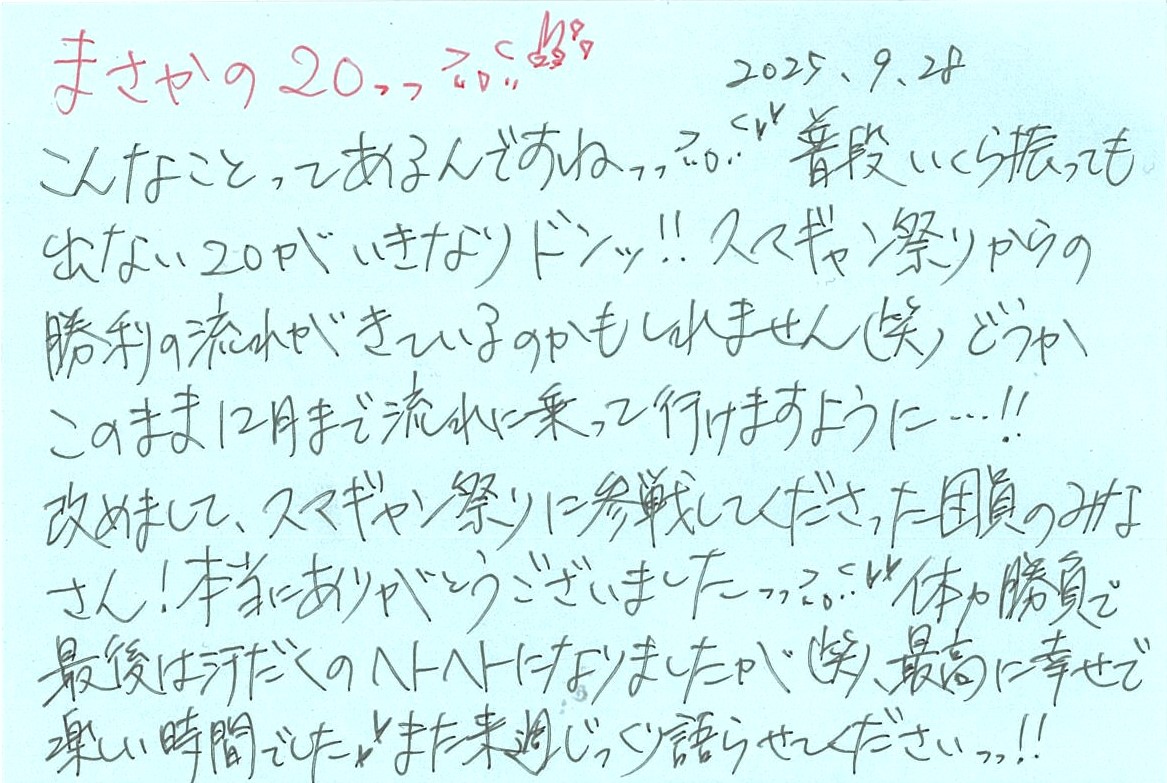 まさかの20っっ
2025.9.28
こんなことってあるんですねっっ 普段いくら振っても
出ない20がいきなりドンッ!!スマギャン祭りからの
勝利の流れがきているのかもしれません(笑)どうか
このまま12月まで流れに乗って行けますように…!!
改めまして、スマギャン祭りに参戦してくださった団員のみな
さん!本当にありがとうございましたっっ 体力勝負で
最後は汗だくのヘトヘトになりましたが(笑)、最高に幸せで
楽しい時間でした また来週じっくり語らせてくださいっっ!!